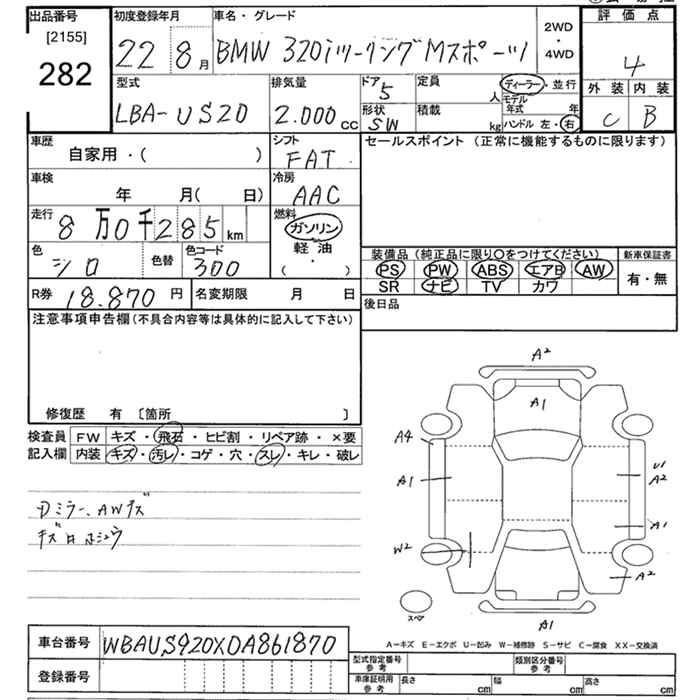 出品番号 初度登録年月 車名・グレード 2WD・4WD 評価点
[2155]
282 22 8月 BMW 320iツーリングMスポーツ 4
型式 排気量 ドア 5 定員 人 ディーラー・並行 外装 内装
LBA-US20 2.000cc 形状 SW 積載 kg モデル年式 年 C B
ハンドル 左・右
車歴 シフト セールスポイント (正常に機能するものに限ります)
自家用・( ) FAT
車検 冷房
年 月( 日) AAC
走行 燃料
8万0千285km ガソリン
色 色替 色コード 軽油
シロ 300 ( ・ )
装備品 (純正品に限り○をつけてください) 新車保証書
PS PW ABS エアB AW 有・無
SR ナビ TV カワ
R券 18.870円 名変期限 月 日 後日品
注意事項申告欄(不具合内容等は具体的に記入して下さい)
修復歴 有 〔箇所 〕
検査員 FW キズ・飛石・ヒビ割・リペア跡・×要
記入欄 内装 キズ・汚レ・コゲ・穴・スレ・キレ・破レ
ミラー、AWキズ
キズ
A2
A1
A4
A1
U1
A2
A1
W2
A2
スペア
A1
A-キズ E-エクボ U-凹み W-補修跡 S-サビ C-腐食 XX-交換済
車台番号 WBAUS920X0A861870
登録番号
型式指定番号 参考 類別区分番号 参考
車庫証明用 参考 長さ cm 幅 cm 高さ cm